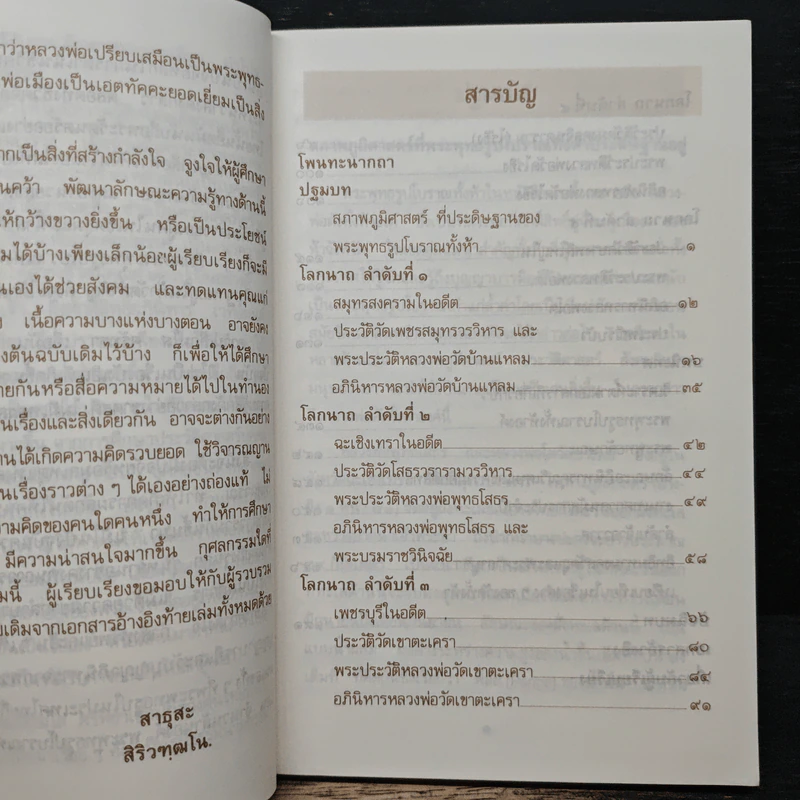 าว่าหลวงพ่อเปรียบเสมือนเป็นพระพุทธ-
พ่อเมืองเป็นเอตทัคคะยอดเยี่ยมเป็นสิ่ง
ากเป็นสิ่งที่สร้างกำลังใจ จูงใจให้ผู้ศึกษา
นคว้า พัฒนาลักษณะความรู้ทางด้านนี้
ห้กว้างขวางยิ่งขึ้น หรือเป็นประโยชน์
มได้บ้างเพียงเล็กน้อย ผู้เรียบเรียงก็จะมี
นเองได้ช่วยสังคม และทดแทนคุณแก่
ง เนื้อความบางแห่งบางตอน อาจยังคง
งต้นฉบับเดิมไว้บ้าง ก็เพื่อให้ได้ศึกษา
ายกันหรือสื่อความหมายได้ไปในทำนอง
นเรื่องและสิ่งเดียวกัน อาจจะต่างกันอย่าง
านได้เกิดความคิดรวบยอด ใช้วิจารณญาน
นเรื่องราวต่าง ๆ ได้เองอย่างถ่องแท้ ไม่
วามคิดของคนใดคนหนึ่ง ทำให้การศึกษา
มีความน่าสนใจมากขึ้น กุศลกรรมใดที่
มนี้ ผู้เรียบเรียงขอมอบให้กับผู้รวบรวม
ยเดิมจากเอกสารอ้างอิงท้ายเล่มทั้งหมดด้วย
สาธุสะ
สิริวฑฺฒโน.
สารบัญ
โพนทะนากถา
ปฐมบท
สภาพภูมิศาสตร์ ที่ประดิษฐานของ
พระพุทธรูปโบราณทั้งห้า ๑
โลกนาถ ลำดับที่ ๑
สมุทรสงครามในอดีต ๑๒
ประวัติวัดเพชรสมุทรวรวิหาร และ
พระประวัติหลวงพ่อวัดบ้านแหลม ๑๖
อภินิหารหลวงพ่อวัดบ้านแหลม ๓๕
โลกนาถ ลำดับที่ ๒
ฉะเชิงเทราในอดีต ๔๒
ประวัติวัดโสธรวรารามวรวิหาร ๔๔
พระประวัติหลวงพ่อพุทธโสธร ๔๙
อภินิหารหลวงพ่อพุทธโสธร และ
พระบรมราชวินิจฉัย ๕๘
โลกนาถ ลำดับที่ ๓
เพชรบุรีในอดีต ๖๖
ประวัติวัดเขาตะเครา ๘๐
พระประวัติหลวงพ่อวัดเขาตะเครา ๘๔
อภินิหารหลวงพ่อวัดเขาตะเครา ๙๑